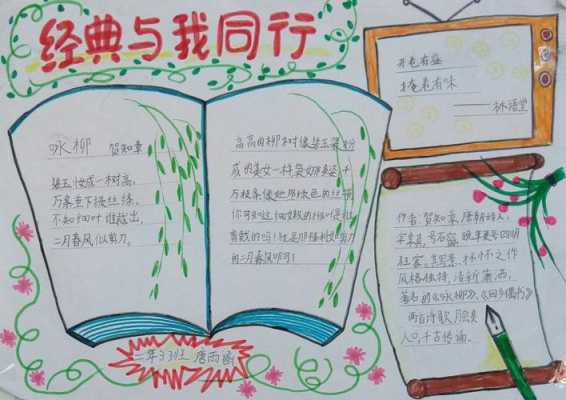 经典与我同行
开卷有益
掩卷有味
——林语堂
咏柳 贺知章
碧玉妆成一树高,
万条垂下绿丝绦。
不知细叶谁裁出,
二月春风似剪刀。
高高的柳树像碧玉装扮
成的美女一样袅娜多姿,千
万枝条像她那绿色的丝带
你可知这细嫩的柳叶是谁
剪裁的吗!就是那
的二月春风呀!
作者:贺知章,唐朝诗人,
字季真,号石窗,晚年更号四明
狂客,抒怀之作
风格独特,清新潇洒,
著名的《咏柳》、《回乡偶书》
两首诗歌脍炙
人口,千古传诵。
二年3班 唐雨